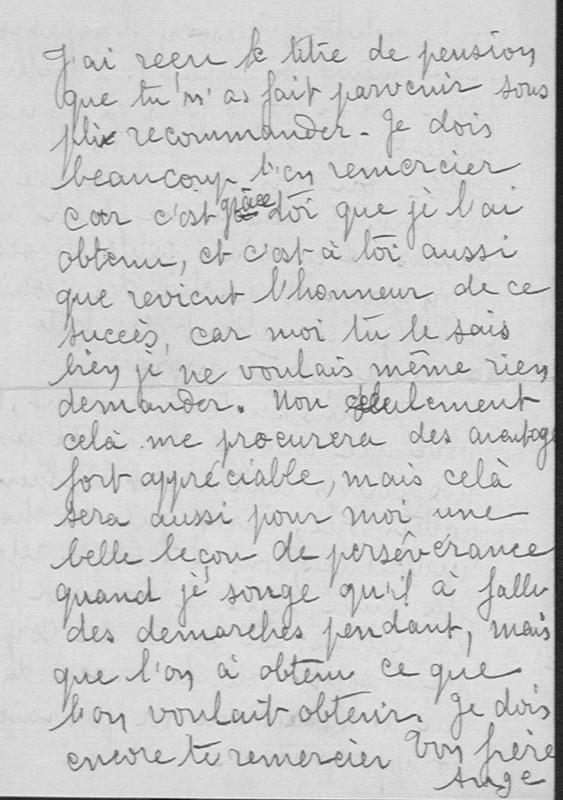 J'ai reçu le titre de pension
que tu m'as fait parvenir sous
pli recommander. Je dois
beaucoup t'en remercier
car c'est grâce toi que je l'ai
obtenu, et c'est à toi aussi
que revient l'honneur de ce
succès, car moi tu le sais
bien je ne voulais même rien
demander. Non seulement
celà me procurera des avantage
fort appréciable, mais celà
sera aussi pour moi une
belle leçon de persévérance
quand je songe qu'il à fallu
des demarches pendant, mais
que l'on à obtenu ce que
l'on voulait obtenir. Je dois
encore te remercier Ton frère
Ange